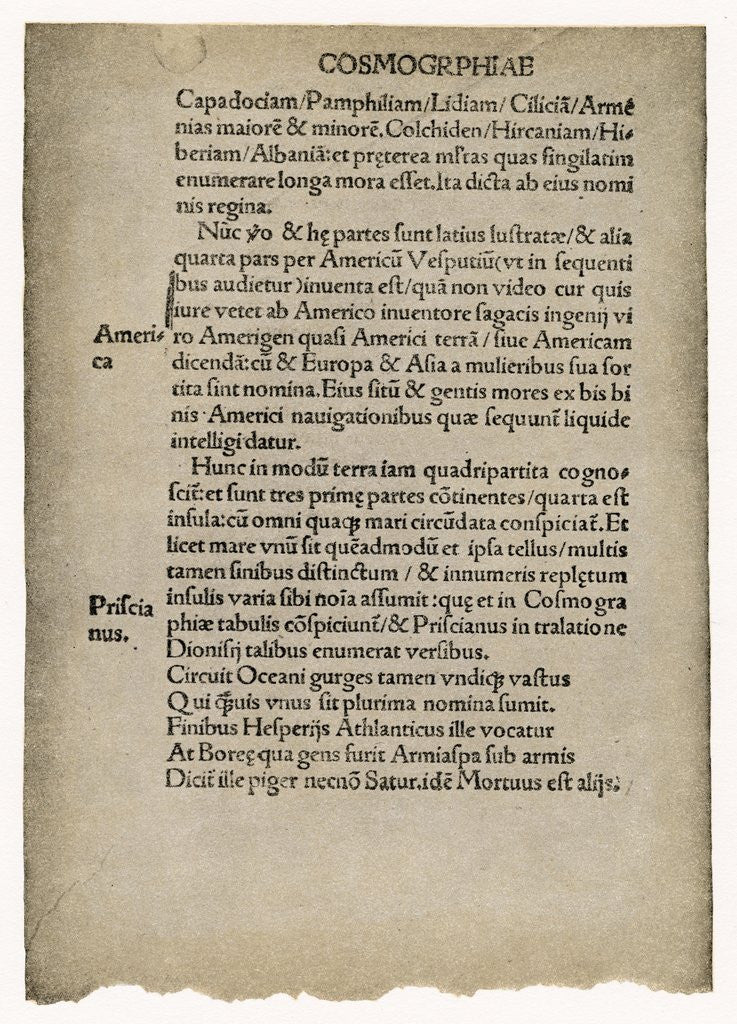 COSMOGRPHIAE
Capadociam/Pamphiliam/Lidiam/ Ciliciā/Armē
nias maiorē & minorē. Colchiden/Hircaniam/Hi-
beriam/Albaniā: et pręterea mĺtas quas singilatim
enumerare longa mora esset. Ita dicta ab eius nomi
nis regina.
Nūc ṽo & hę partes sunt latius lustratæ/& alia
quarta pars per Americū Vesputiū(vt in sequenti
bus audietur)inuenta est/quā non video cur quis
iure vetet ab Americo inuentore sagacis ingenij vi
Ameri-
ca
ro Amerigen quasi Americi terrā / siue Americam
dicendā: cū & Europa & Asia a mulieribus sua sor
tita sint nomina. Eius sitū & gentis mores ex bis bi
nis Americi nauigationibus quæ sequunt̄ liquide
intelligi datur.
Hunc in modū terra iam quadripartita cogno-
scit̄: et sunt tres primę partes cōtinentes/quarta est
insula: cū omni quaqꝫ mari circūdata conspiciat̄. Et
licet mare vnū sit quēadmodū et ipsa tellus/multis
tamen sinibus distinctum / & innumeris replętum
Priscia
nus.
insulis varia sibi noīa assumit: quę et in Cosmogra
phiæ tabulis cōspiciunt̄/& Priscianus in tralatione
Dionisij talibus enumerat versibus.
Circuit Oceani gurges tamen vndiqꝫ vastus
Qui qꝫuis vnus sit plurima nomina sumit.
Finibus Hesperijs Athlanticus ille vocatur
At Boreę qua gens furit Armiaspa sub armis
Dicit̄ ille piger necnō Satur. idē Mortuus est alijs: